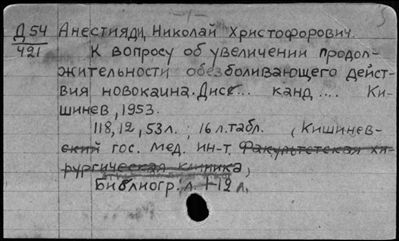 -1-
Д 54 Анестияди, Николай Христофорович.
421 К вопросу об увеличении продол-
жительности обезболивающего дейст-
вия новокаина. Дисс... канд.... Ки-
шинев, 1953.
118, 12, 53 л.; 16 л. табл. (Кишинев-
ский гос. мед. ин-т. Факультетская хи-
рургическая клиника)
Библиогр. л. 1-12 л.